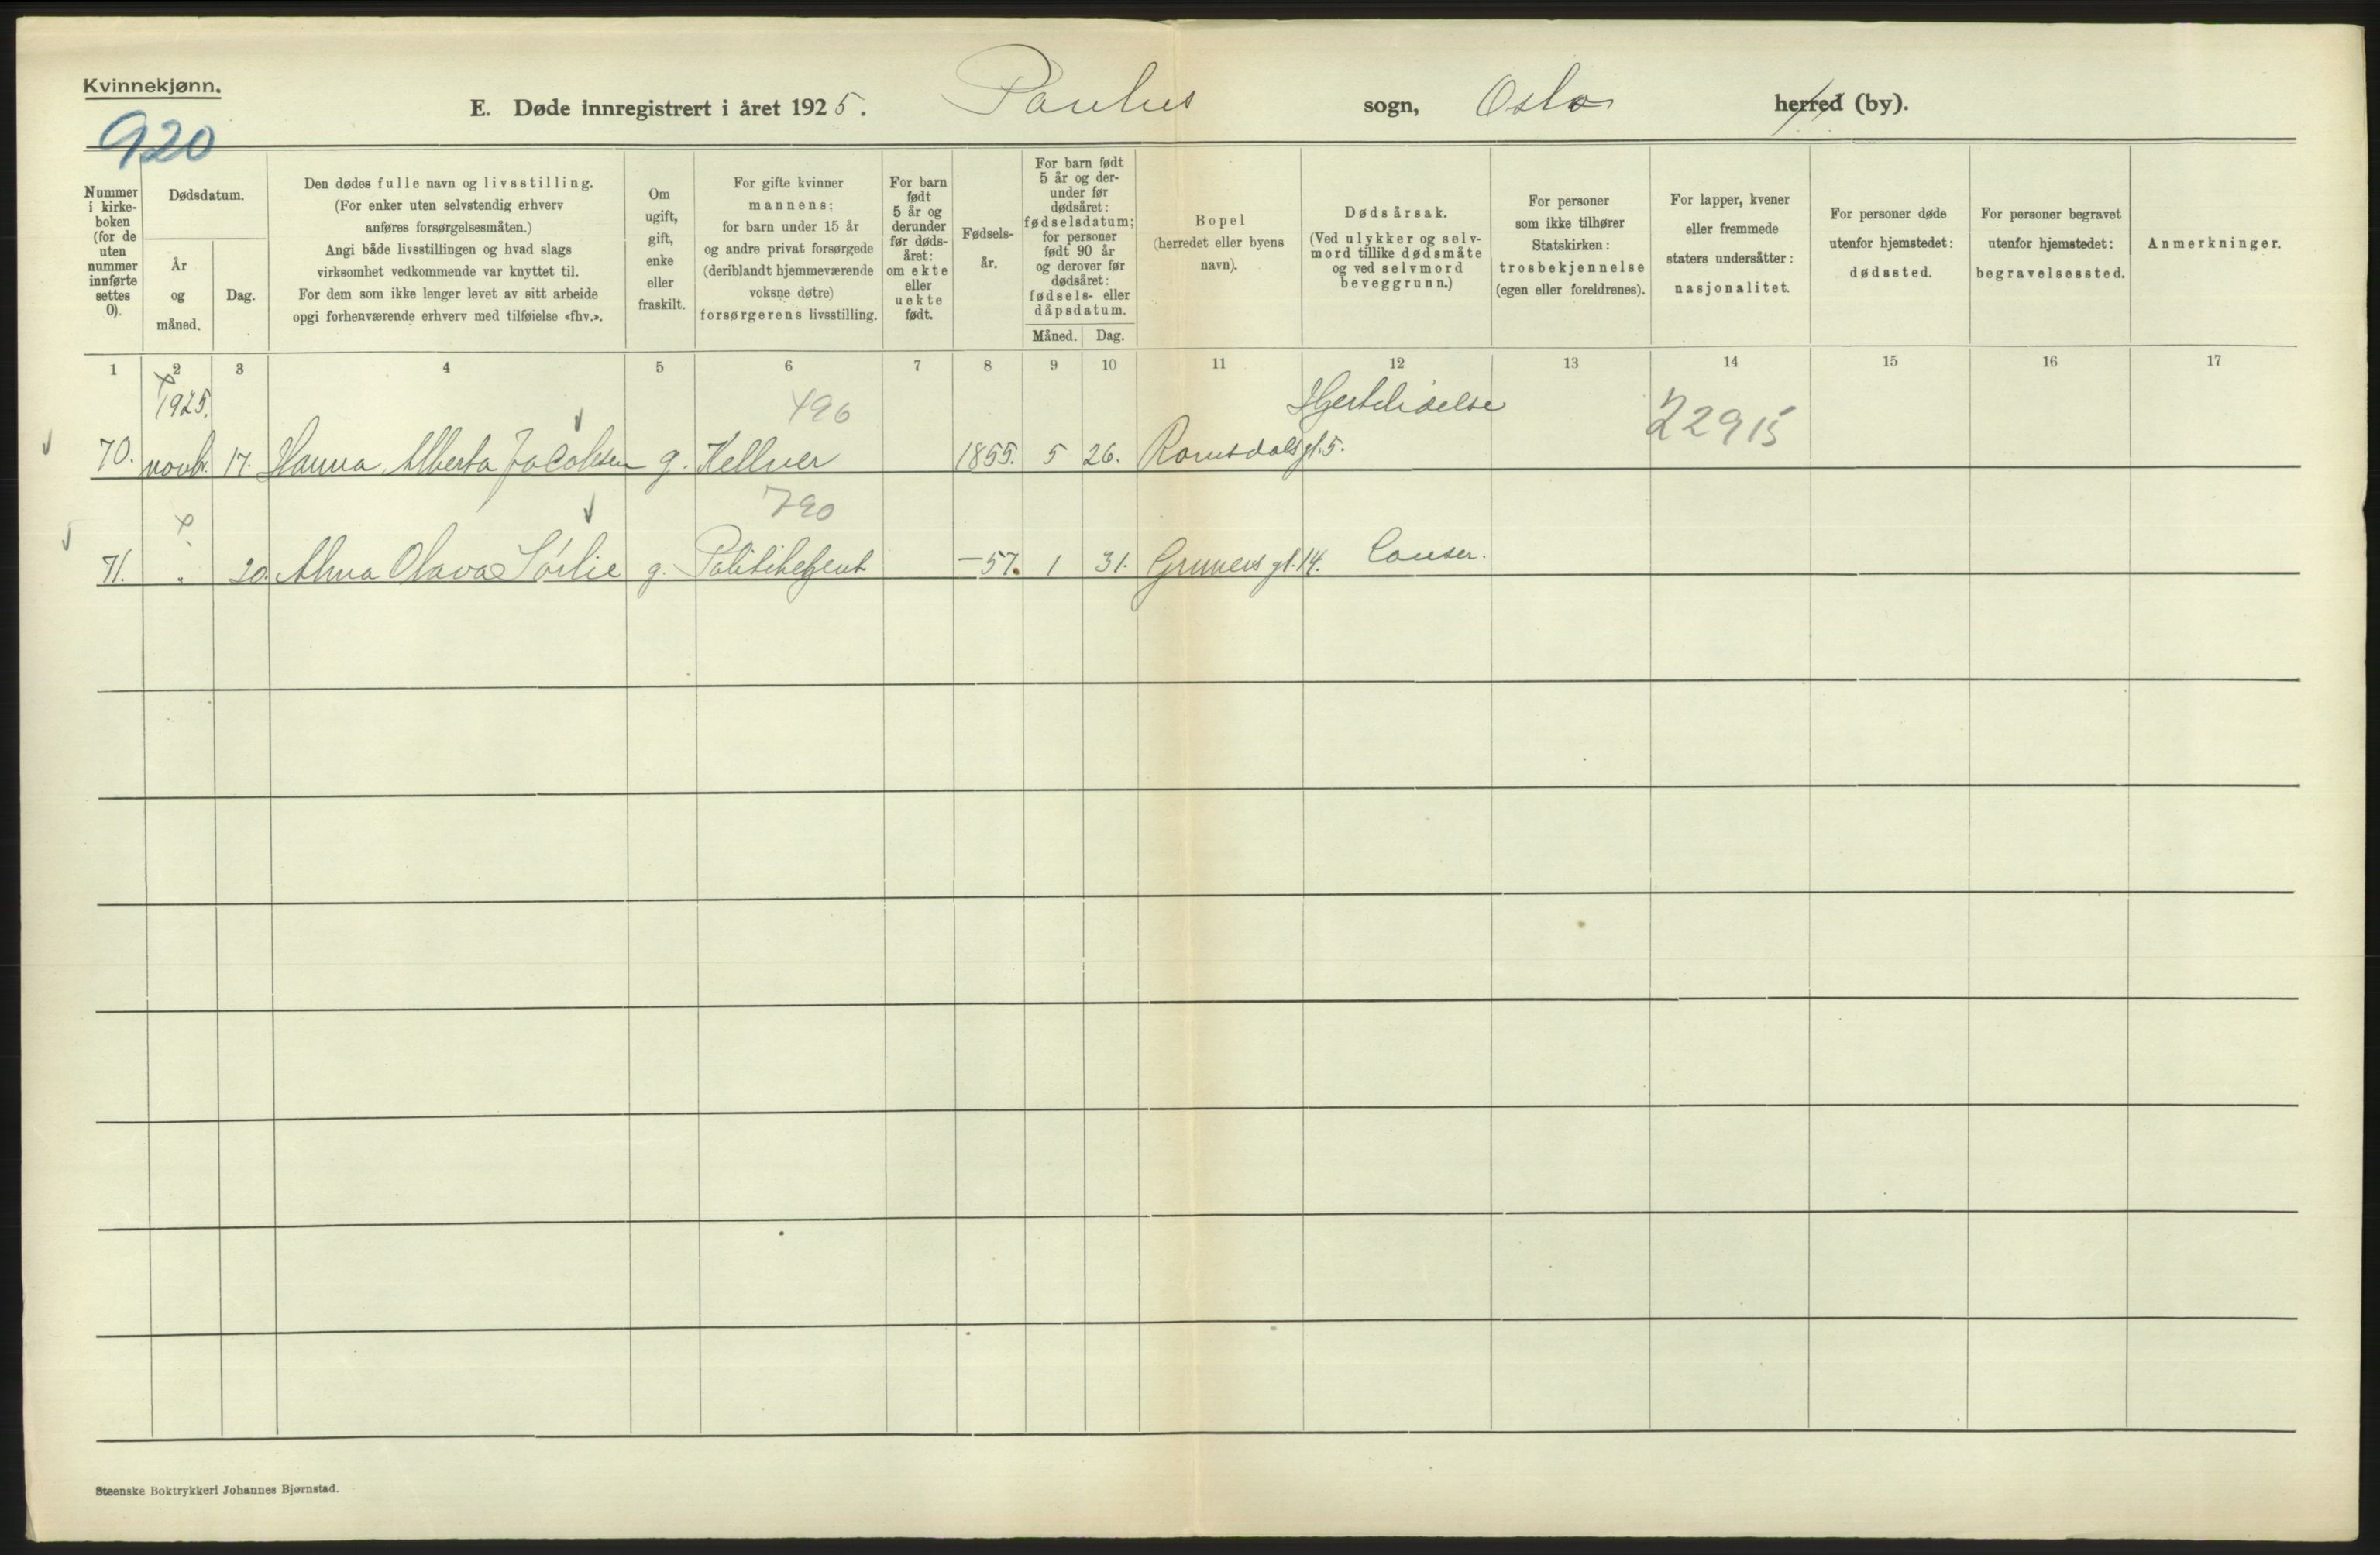 Kvinnekjønn.
920
E. Døde innregistrert i året 1925. Paulus sogn, Oslo herred (by).
Nummer i kirke-boken (for de uten nummer innførte settes 0).
Dødsdatum.
År og måned.
Dag.
Den dødes fulle navn og livsstilling.
(For enker uten selvstendig erhverv
anføres forsørgelsesmåten.)
Angi både livsstillingen og hvad slags
virksomhet vedkommende var knyttet til.
For dem som ikke lenger levet av sitt arbeide
opgi forhenværende erhverv med tilføielse «fhv.».
Om
ugift,
gift,
enke
eller
fraskilt.
For gifte kvinner
mannens;
for barn under 15 år
og andre privat forsørgede
(deriblandt hjemmeværende
voksne døtre)
forsørgerens livsstilling.
For barn
født
5 år og
derunder
før døds-
året:
om ekte
eller
uekte
født.
Fødsels-
år.
For barn født
5 år og der-
under før
dødsåret:
fødselsdatum;
for personer
født 90 år
og derover før
dødsåret:
fødsels- eller
dåpsdatum.
Måned. Dag.
Bopel
(herredet eller byens
navn).
Dødsårsak.
(Ved ulykker og selv-
mord tillike dødsmåte
og ved selvmord
beveggrunn.)
For personer
som ikke tilhører
Statskirken:
trosbekjennelse
(egen eller foreldrenes).
For lapper, kvener
eller fremmede
staters undersåtter:
nasjonalitet.
For personer døde
utenfor hjemstedet:
dødssted.
For personer begravet
utenfor hjemstedet:
begravelsessted.
Anmerkninger.
1 2 3 4 5 6 7 8 9 10 11 12 13 14 15 16 17
1925. 496 Hjertelidelse 22915
70. novb. 17. Hanna Alberta Jacobsen g. Kellner 1855. 5 26. Romsdals gt. 5.
790
71. . 20. Alma Olava Sørlie g. Politibetjent —57. 1 31. Gruners gt. 14. Canser.
Steenske Boktrykkeri Johannes Bjørnstad.